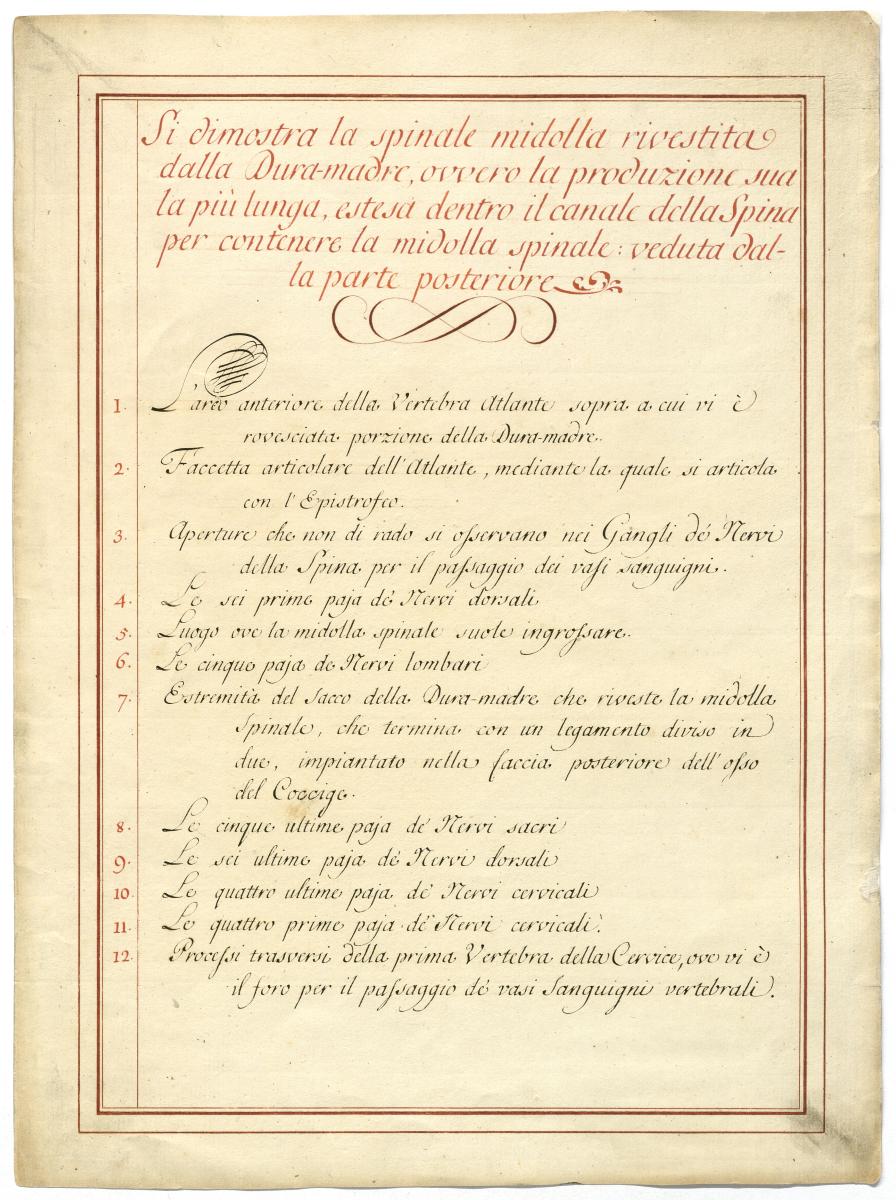 Si dimostra la spinale midolla rivestita
dalla Dura-madre, ovvero la produzione sua
la più lunga, estesa dentro il canale della Spina
per contenere la midolla spinale: veduta dal-
la parte posteriore
1. L'arco anteriore della Vertebra Atlante sopra a cui vi è
rovesciata porzione della Dura-madre.
2. Faccetta articolare dell'Atlante, mediante la quale si articola
con l'Epistrofeo.
3. Aperture che non di rado si oſservano nei Gangli de' Nervi
della Spina per il paſsaggio dei vasi sanguigni.
4. Le sei prime paja de' Nervi dorsali
5. Luogo ove la midolla spinale suole ingroſsare.
6. Le cinque paja de Nervi lombari
7. Estremità del sacco della Dura-madre che riveste la midolla
spinale, che termina con un legamento diviso in
due, impiantato nella faccia posteriore dell'oſso
del Coccige.
8. Le cinque ultime paja de' Nervi sacri
9. Le sei ultime paja de' Nervi dorsali
10. Le quattro ultime paja de' Nervi cervicali
11. Le quattro prime paja de' Nervi cervicali.
12. Proceſsi trasversi della prima Vertebra della Cervice, ove vi è
il foro per il paſsaggio de' vasi Sanguigni vertebrali.